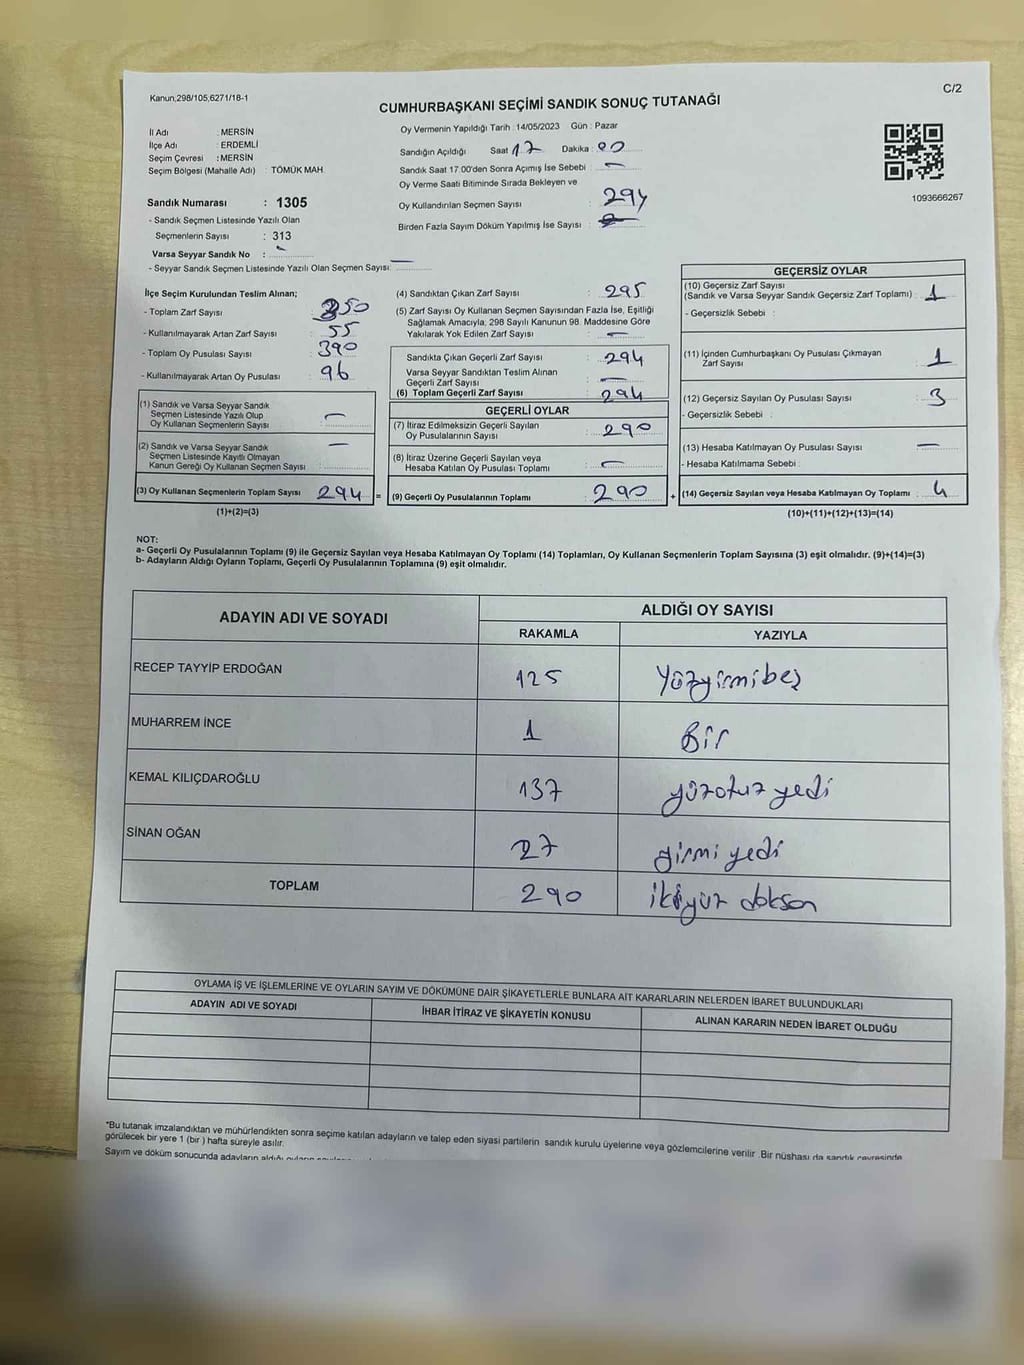 Kanun,298/105,6271/18-1
C/2
CUMHURBAŞKANI SEÇİMİ SANDIK SONUÇ TUTANAĞI
İl Adı : MERSİN
İlçe Adı : ERDEMLİ
Seçim Çevresi : MERSİN
Seçim Bölgesi (Mahalle Adı) : TÖMÜK MAH.
Oy Vermenin Yapıldığı Tarih : 14/05/2023 Gün : Pazar
Sandığın Açıldığı Saat 17 Dakika : 00
Sandık Saat 17:00'den Sonra Açımış İse Sebebi : —
Oy Verme Saati Bitiminde Sırada Bekleyen ve
Oy Kullandırılan Seçmen Sayısı : 294
Birden Fazla Sayım Döküm Yapılmış İse Sayısı :
1093666267
Sandık Numarası : 1305
- Sandık Seçmen Listesinde Yazılı Olan
Seçmenlerin Sayısı : 313
Varsa Seyyar Sandık No :
- Seyyar Sandık Seçmen Listesinde Yazılı Olan Seçmen Sayısı: —
İlçe Seçim Kurulundan Teslim Alınan;
- Toplam Zarf Sayısı : 350
- Kullanılmayarak Artan Zarf Sayısı : 55
- Toplam Oy Pusulası Sayısı : 390
- Kullanılmayarak Artan Oy Pusulası : 96
(1) Sandık ve Varsa Seyyar Sandık
Seçmen Listesinde Yazılı Olup
Oy Kullanan Seçmenlerin Sayısı : —
(2) Sandık ve Varsa Seyyar Sandık
Seçmen Listesinde Kayıtlı Olmayan
Kanun Gereği Oy Kullanan Seçmen Sayısı : —
(3) Oy Kullanan Seçmenlerin Toplam Sayısı : 294 =
(1)+(2)=(3)
(4) Sandıktan Çıkan Zarf Sayısı : 295
(5) Zarf Sayısı Oy Kullanan Seçmen Sayısından Fazla İse, Eşitliği
Sağlamak Amacıyla; 298 Sayılı Kanunun 98. Maddesine Göre
Yakılarak Yok Edilen Zarf Sayısı : —
Sandıkta Çıkan Geçerli Zarf Sayısı : 294
Varsa Seyyar Sandıktan Teslim Alınan
Geçerli Zarf Sayısı : —
(6) Toplam Geçerli Zarf Sayısı : 294
GEÇERLİ OYLAR
(7) İtiraz Edilmeksizin Geçerli Sayılan
Oy Pusulalarının Sayısı : 290
(8) İtiraz Üzerine Geçerli Sayılan veya
Hesaba Katılan Oy Pusulası Toplamı : —
(9) Geçerli Oy Pusulalarının Toplamı : 290 +
GEÇERSİZ OYLAR
(10) Geçersiz Zarf Sayısı
(Sandık ve Varsa Seyyar Sandık Geçersiz Zarf Toplamı) : 1
- Geçersizlik Sebebi :
(11) İçinden Cumhurbaşkanı Oy Pusulası Çıkmayan
Zarf Sayısı : 1
(12) Geçersiz Sayılan Oy Pusulası Sayısı : 3
- Geçersizlik Sebebi :
(13) Hesaba Katılmayan Oy Pusulası Sayısı : —
- Hesaba Katılmama Sebebi :
(14) Geçersiz Sayılan veya Hesaba Katılmayan Oy Toplamı : 4
(10)+(11)+(12)+(13)=(14)
NOT:
a- Geçerli Oy Pusulalarının Toplamı (9) ile Geçersiz Sayılan veya Hesaba Katılmayan Oy Toplamı (14) Toplamları, Oy Kullanan Seçmenlerin Toplam Sayısına (3) eşit olmalıdır. (9)+(14)=(3)
b- Adayların Aldığı Oyların Toplamı, Geçerli Oy Pusulalarının Toplamına (9) eşit olmalıdır.
ADAYIN ADI VE SOYADI ALDIĞI OY SAYISI
RAKAMLA YAZIYLA
RECEP TAYYİP ERDOĞAN 125 Yüzyirmibeş
MUHARREM İNCE 1 Bir
KEMAL KILIÇDAROĞLU 137 yüzotuz yedi
SİNAN OĞAN 27 yirmi yedi
TOPLAM 290 ikiyüz doksan
OYLAMA İŞ VE İŞLEMLERİNE VE OYLARIN SAYIM VE DÖKÜMÜNE DAİR ŞİKAYETLERLE BUNLARA AİT KARARLARIN NELERDEN İBARET BULUNDUKLARI
ADAYIN ADI VE SOYADI İHBAR İTİRAZ VE ŞİKAYETİN KONUSU ALINAN KARARIN NEDEN İBARET OLDUĞU
"Bu tutanak imzalandıktan ve mühürlendikten sonra seçime katılan adayların ve talep eden siyasi partilerin sandık kurulu üyelerine veya gözlemcilerine verilir .Bir nüshası da sandık çevresinde
görülecek bir yere 1 (bir ) hafta süreyle asılır.
Sayım ve döküm sonucunda adayların aldığı oyların